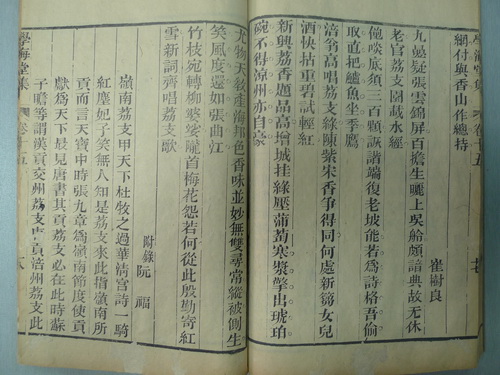 網付與香山作總持
崔樹良
九嶷張雲錦屏百擔生麗上吳船頗諳典故無休
老官荔支圖載水經
僊啖底須三百顆誤譜端復老坡能若為詩格吾偷
取直把鱸魚坐季鷹
涪翁高唱荔支綠頤紫朱香爭得同何處新篘女兒
酒快拈重碧試輕紅
新興荔香題品高增城挂綠壓蒲萄寒漿擎出琥珀
碗不得涼州亦自豪
尤物天教產海邦色香味並妙無雙尋常縱被側生
笑風度還如張曲江
竹枝宛轉柳婆娑隴首梅花怨若何從此殷勤寄紅
雪新詞齊唱荔支歌
附錄 阮福
嶺南荔支甲天下杜牧之過華清宮詩一騎
紅塵妃子笑無人知是荔支來此指嶺南所
貢而言天寶中時張九章為嶺南節度使貢
獻為天下最見唐書其貢荔支必在此時蘇
子瞻等謂漢貢交州荔支唐貢涪州荔支此
學海堂集 卷十五